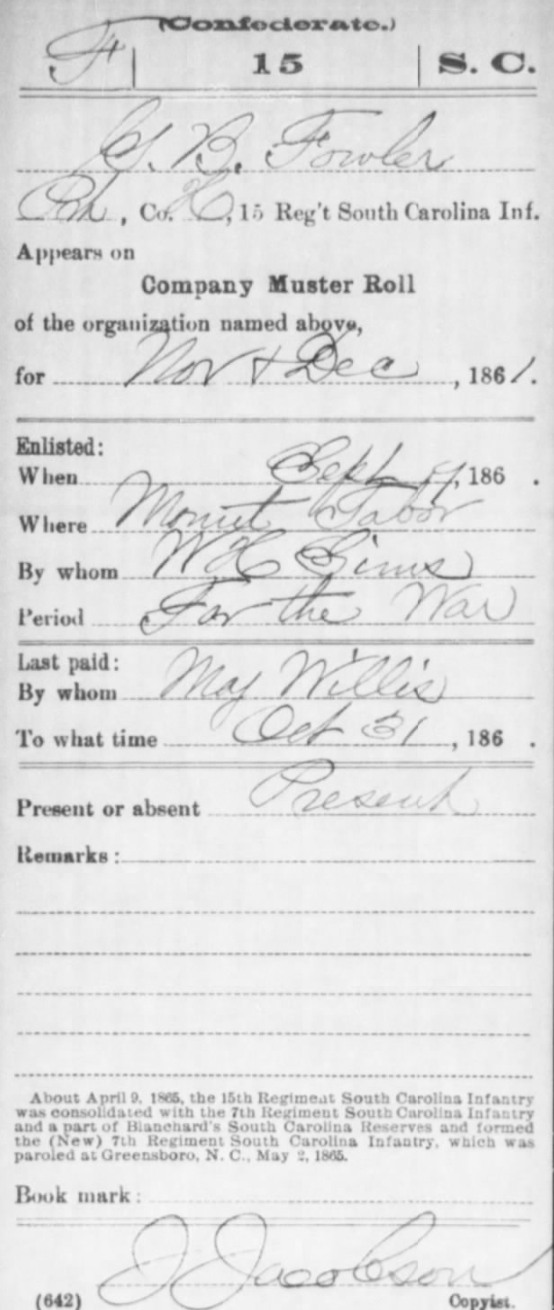 (Confederate.)
F | 15 | S. C.
G. B. Fowler
Pvt, Co. H, 15 Reg't South Carolina Inf.
Appears on
Company Muster Roll
of the organization named above,
for Nov & Dec, 1861.
Enlisted:
When Sept 9, 186 .
Where Mount Tabor
By whom W H Sims
Period For the War
Last paid:
By whom Maj Willis
To what time Oct 31, 186 .
Present or absent Present
Remarks:
About April 9, 1865, the 15th Regiment South Carolina Infantry
was consolidated with the 7th Regiment South Carolina Infantry
and a part of Blanchard's South Carolina Reserves and formed
the (New) 7th Regiment South Carolina Infantry, which was
paroled at Greensboro, N. C., May 2, 1865.
Book mark:
J Jacobson
(642) Copyist.